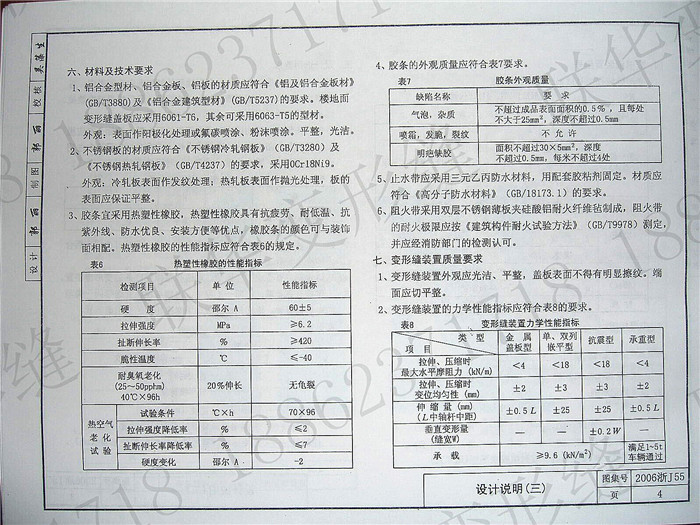 六、材料及技术要求
1、铝合金型材、铝合金板、铝板的材质应符合《铝及铝合金板材》
(GB/T3880)及《铝合金建筑型材》(GB/T5237)的要求。楼地面
变形缝盖板应采用6061-T6，其余可采用6063-T5的型材。
外观：表面作阳极化处理或氟碳喷涂、粉末喷涂。平整，光洁。
2、不锈钢板的材质应符合《不锈钢冷轧钢板》(GB/T3280)及
《不锈钢热轧钢板》(GB/T4237)的要求，采用0Cr18Ni9。
外观：冷轧板表面作发纹处理；热轧板表面作抛光处理，板的
表面应保证平整。
3、胶条宜采用热塑性橡胶，热塑性橡胶具有抗疲劳、耐低温、抗
紫外线、防水优良、安装方便等优点，橡胶条的颜色可与装饰
面相配。热塑性橡胶的性能指标应符合表6的规定。
表6 热塑性橡胶的性能指标
检测项目 单 位 性能指标
硬 度 邵尔 A 60±5
拉伸强度 MPa ≥6.2
扯断伸长率 % ≥420
脆性温度 ℃ ≤-40
耐臭氧老化
(25～50pphm)
40℃×96h
20%伸长 无龟裂
热空气
老 化
试 验
试验条件 ℃×h 70×96
拉伸强度降低率 % ≤2
扯断伸长率降低率 % ≤7
硬度变化 邵尔 A -2
4、胶条的外观质量应符合表7要求。
表7 胶条外观质量
缺陷名称 要 求
气泡，杂质 不超过成品表面面积的0.5%，且每处
不大于25mm²，深度不超过0.5mm
喷霜，发脆，裂纹 不 允 许
明疤缺胶 面积不超过30×5mm²，深度
不超过0.5mm，每米不超过4处
5、止水带应采用三元乙丙防水材料，用配套胶粘剂固定。材质应
符合《高分子防水材料》(GB/18173.1)的要求。
6、阻火带采用双层不锈钢薄板夹硅酸铝耐火纤维毡制成，阻火带
的耐火极限应按《建筑构件耐火试验方法》(GB/T9978)测定，
并应经消防部门的检测认可。
七、变形缝装置质量要求
1、变形缝装置外观应光洁、平整，盖板表面不得有明显擦纹。端
面应切平整。
2、变形缝装置的力学性能指标应符合表8的要求。
表8 变形缝装置力学性能指标
类 型
项 目
金 属
盖板型
单、双列
嵌平型
抗震型 承重型
拉伸、压缩时
最大水平摩阻力 (kN/m)
<4 <18 <18 <4
拉伸、压缩时
变位均匀性 (mm)
±2 ±3 ±3 ±2
伸 缩 量 (mm)
(L中轴杆中距)
±0.5L ±25 ±25 ±0.5L
垂直变形量
(缝宽W)
— — ±0.2W —
承 载 ≥9.6 (kN/m²) 满足1~5t
车辆通过
设计说明(三)
图集号 2006浙J55
页 4
校核
制图
设计
联华变形缝 18862371718